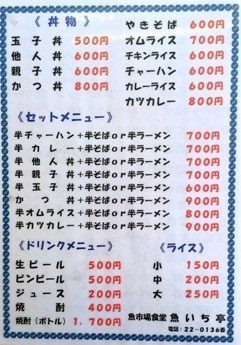 《丼物》
玉子丼 500円
他人丼 600円
親子丼 600円
かつ丼 800円
やきそば 600円
オムライス 700円
チキンライス 600円
チャーハン 600円
カレーライス 600円
カツカレー 800円
《セットメニュー》
半チャーハン+半そばor半ラーメン 700円
半カレー+半そばor半ラーメン 700円
半他人丼+半そばor半ラーメン 700円
半親子丼+半そばor半ラーメン 700円
半玉子丼+半そばor半ラーメン 600円
かつ丼+半そばor半ラーメン 900円
半オムライス+半そばor半ラーメン 800円
半カツカレー+半そばor半ラーメン 900円
《ドリンクメニュー》
生ビール 500円
ビンビール 500円
ジュース 200円
焼酎 400円
焼酎(ボトル) 1.700円
《ライス》
小 150円
中 200円
大 250円
魚市場食堂 魚いち亭
電話:22-0136番